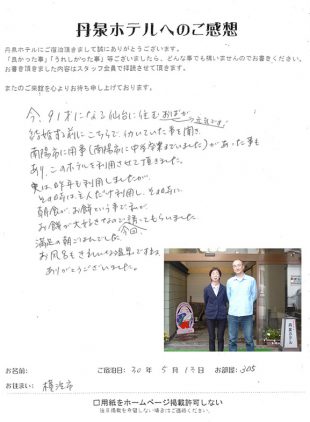 丹泉ホテルへのご感想
丹泉ホテルにご宿泊頂きまして誠にありがとうございます。
「良かった事」「うれしかった事」等ございましたら、どんな事でも構いませんのでお書きください。
お書き頂きました内容はスタッフ全員で拝読させて頂きます。
またのご来館を心よりお待ち申し上げております。
今、91才になる仙台に住むおばが
結婚する前にこちらで、働いていた事を聞き
南陽市に用事(南陽市に中学卒業までいました)があった事も
あり、このホテルを利用させて頂きました。
実は昨年も利用しましたが、
その時は主人だけ利用し、その時に
朝食が、お餅という事で私が
お餅が大好きなので今回、誘ってもらいました
満足の朝ごはんでした。
お風呂もきれいな温泉ですね
ありがとうございました。
丹泉ホテル
お名前:
ご宿泊日: 30 年 5 月 13 日
お部屋: 305
お住まい: 横浜市
□用紙をホームページ掲載許可しない
※当日掲載を希望しない場合はご連絡ください。